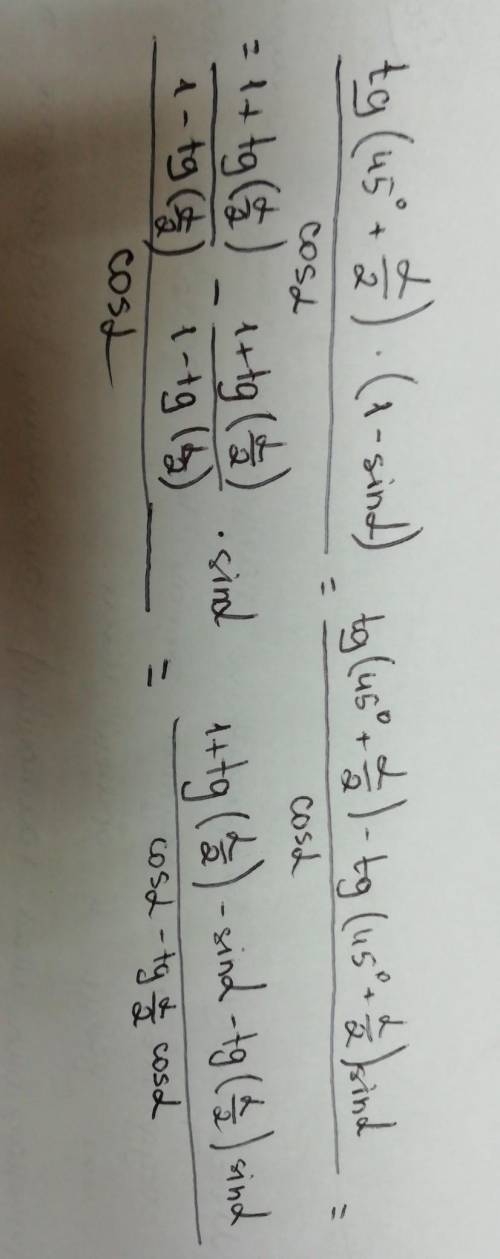 tg(45° + α/2) · (1 - sinα) / cosα = tg(45° + α/2) - tg(45° + α/2)sinα / cosα =
= 1 + tg(α/2) / 1 - tg(α/2) - 1 + tg(α/2) / 1 - tg(α/2) · sinα / cosα = 1 + tg(α/2) - sinα - tg(α/2)sinα / cosα - tg α/2 cosα